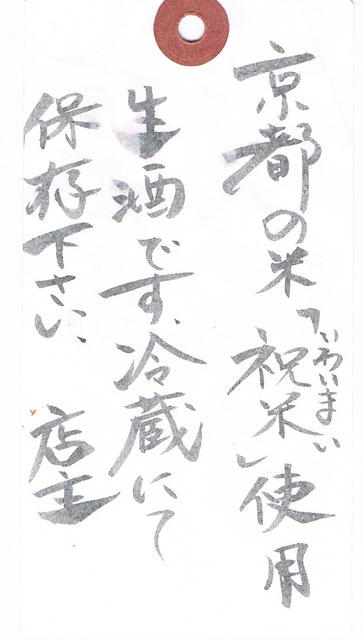 京都の米「祝米」使用
いわいまい
生酒です、冷蔵にて
保存下さい、 店主